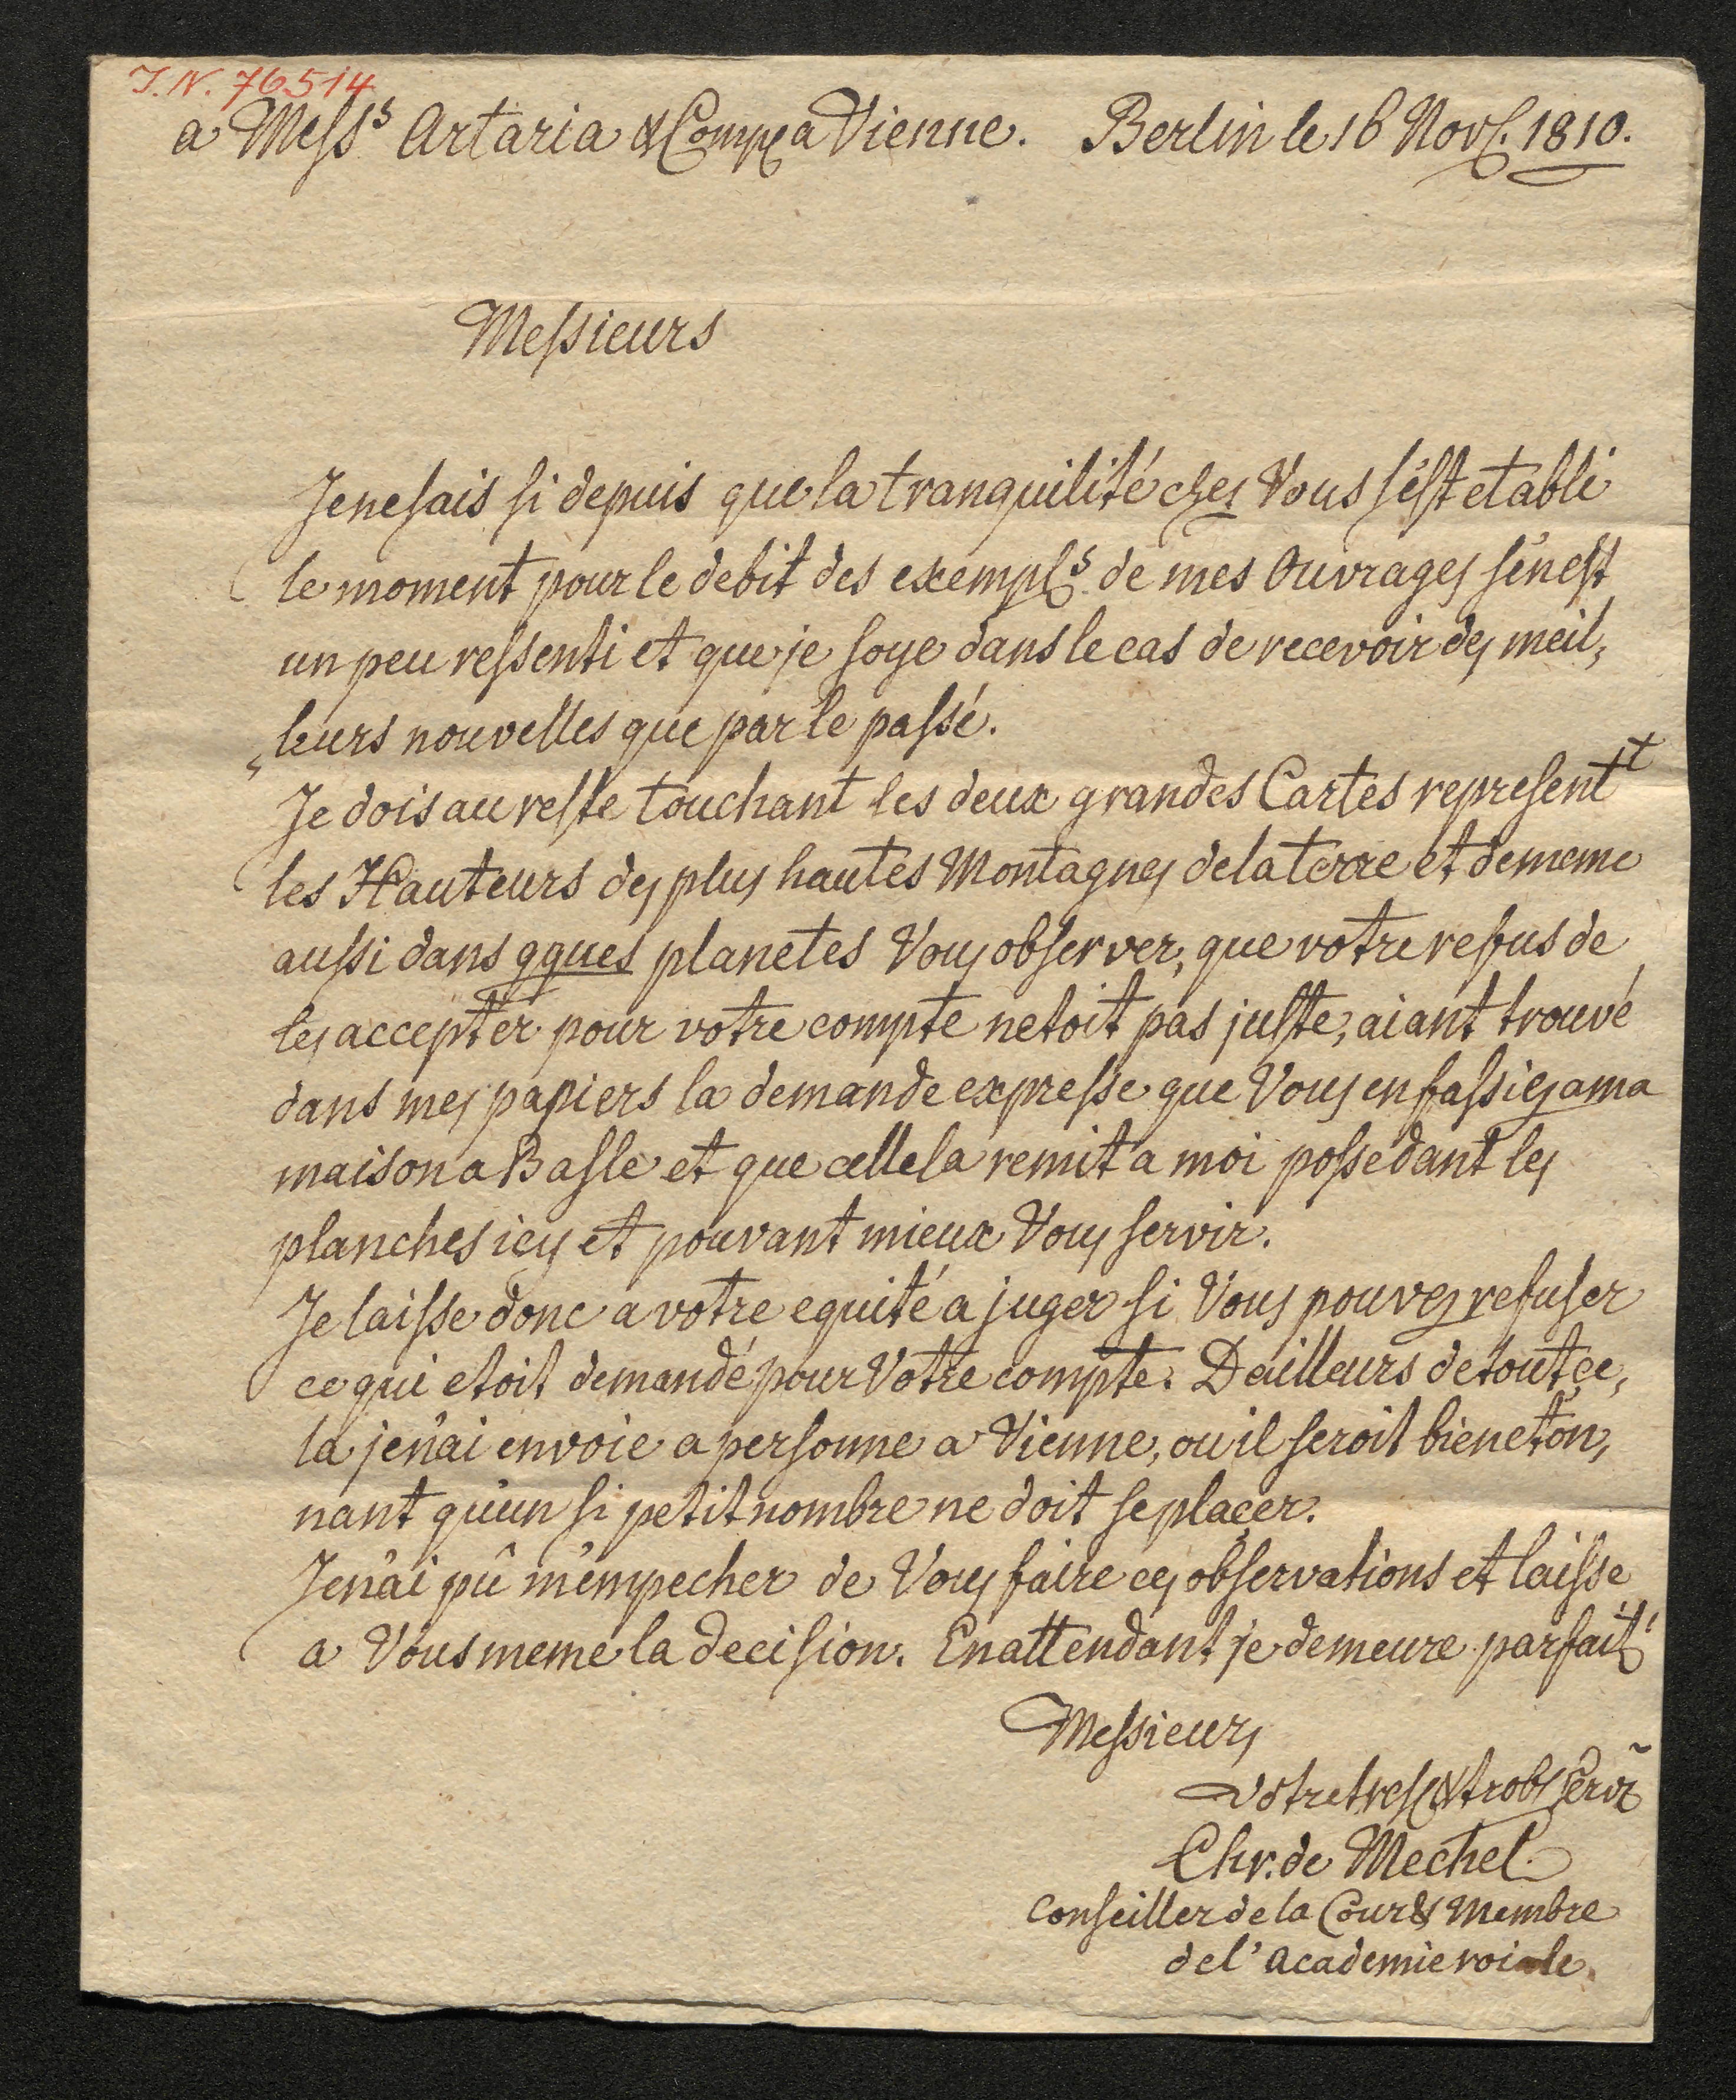 I.N. 76514
a Mess.s Artaria & Comp. a Vienne. Berlin le 16 Nov. 1810.
Messieurs
Je ne sais si depuis que la tranquilité chez Vous s'est etabli
le moment pour le debit des exempl.s de mes Ouvrages s'en est
un peu ressenti et que je soye dans le cas de recevoir des meil,
„leurs nouvelles que par le passé.
Je dois au reste touchant les deux grandes Cartes represent.t
les Hauteurs des plus hautes Montagnes de la terre et de meme
aussi dans qques planetes Vous observer, que votre refus de
les accepter pour votre compte netoit pas juste, aiant trouvé
dans mes papiers la demande expresse que Vous en fassiez a ma
maison a Basle et que celle la remit a moi possedant les
planches icy et pouvant mieux Vous servir.
Je laisse donc a votre equité a juger si Vous pouvez refuser
ce qui etoit demandé pour Votre compte. Dailleurs de tout ce,
la je n'ai envoie a personne a Vienne, ou il seroit bien eton,
nant qu'un si petit nombre ne doit se placer.
Je n'ai pû m'empecher de Vous faire ces observations et laisse
a Vous meme la decision. En attendant je demeure parfait.
Messieurs
Votre tres & tr obs Servr
Chr. de Mechel.
Conseiller de la Cour & Membre
de l'academie roiale.